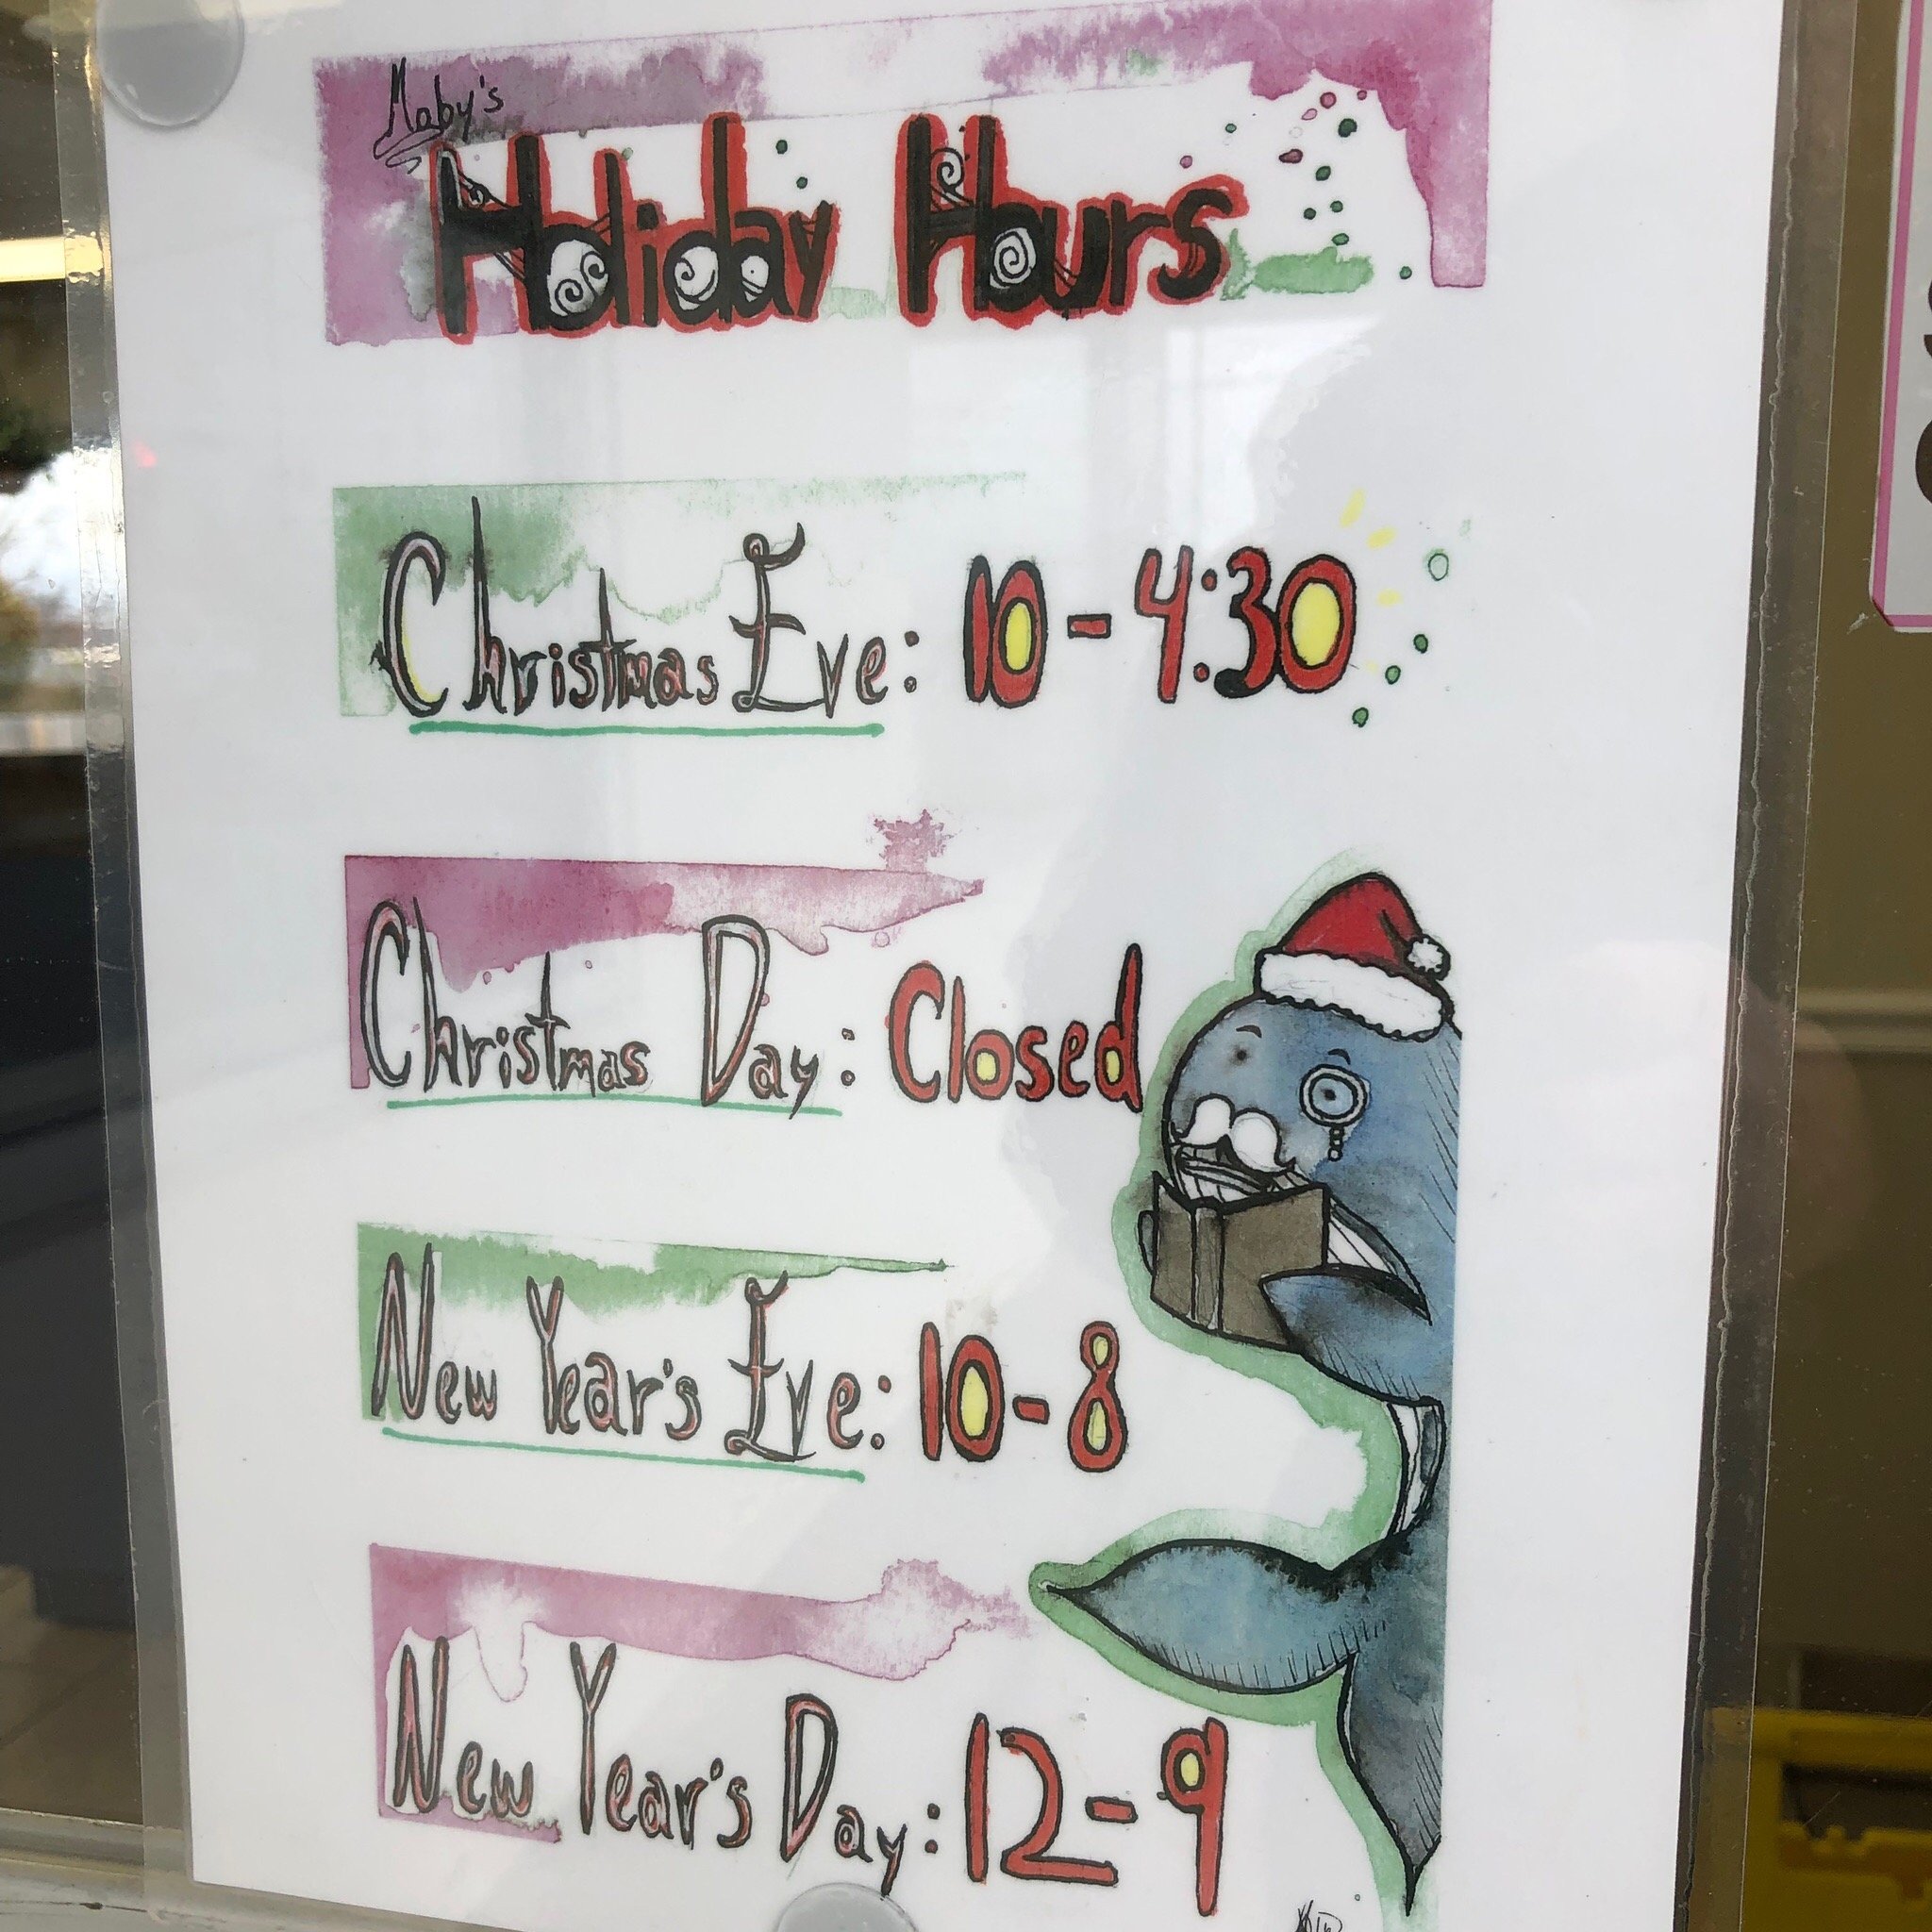 Moby's
Holiday Hours
Christmas Eve: 10 - 4:30
Christmas Day: Closed
New Year's Eve: 10 - 8
New Year's Day: 12 - 9